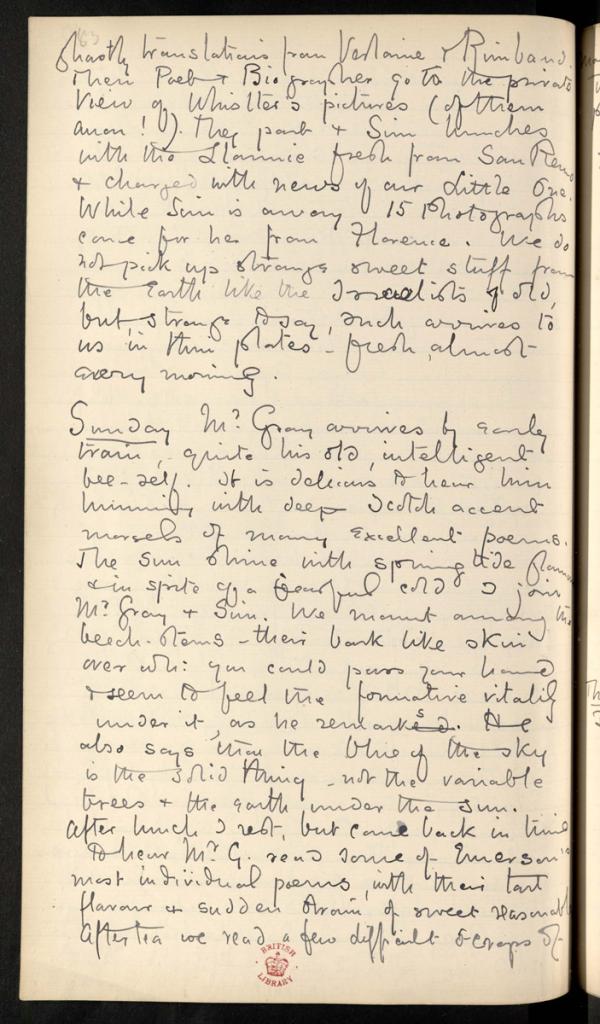 63
ghastly translations from Verlaine & Rimbaud.
Then Poet & Biographer go to the private
View of Whistler's pictures (of them
anon!). They part & Sim lunches
with the fresh from San Remo
& charged with news of our Little One.
While Sim is away 15 Photographs
come for her from Florence. We do
not pick up strange sweet stuff from
the Earth like the Israelists of old,
but, strange to say, such arrives to
us in thin plates - fresh, almost
every morning.
Sunday Mr Gray arrives by early
train, - quite his old, intelligent
bee-self. It is delicious to hear him
humming with deep Scotch accent
morsels of many excellent poems.
The Sun shine with spring tide
& in spite of a fearful cold I join
Mr Gray & Sim. We mount among the
beech-stems - their bark like skin
over wh: you could pass your hand
& seem to feel the formative vitality
under it, as he remarks. He
also says that the blue of the sky
is the solid thing - not the variable
trees & the earth under the sun.
After lunch I rest, but come back in time
to hear Mr G. read some of Emerson's
most individual poems, with their tart
flavour & sudden strain of sweet
After tea we read a few difficult scraps of
BRITISH
LIBRARY